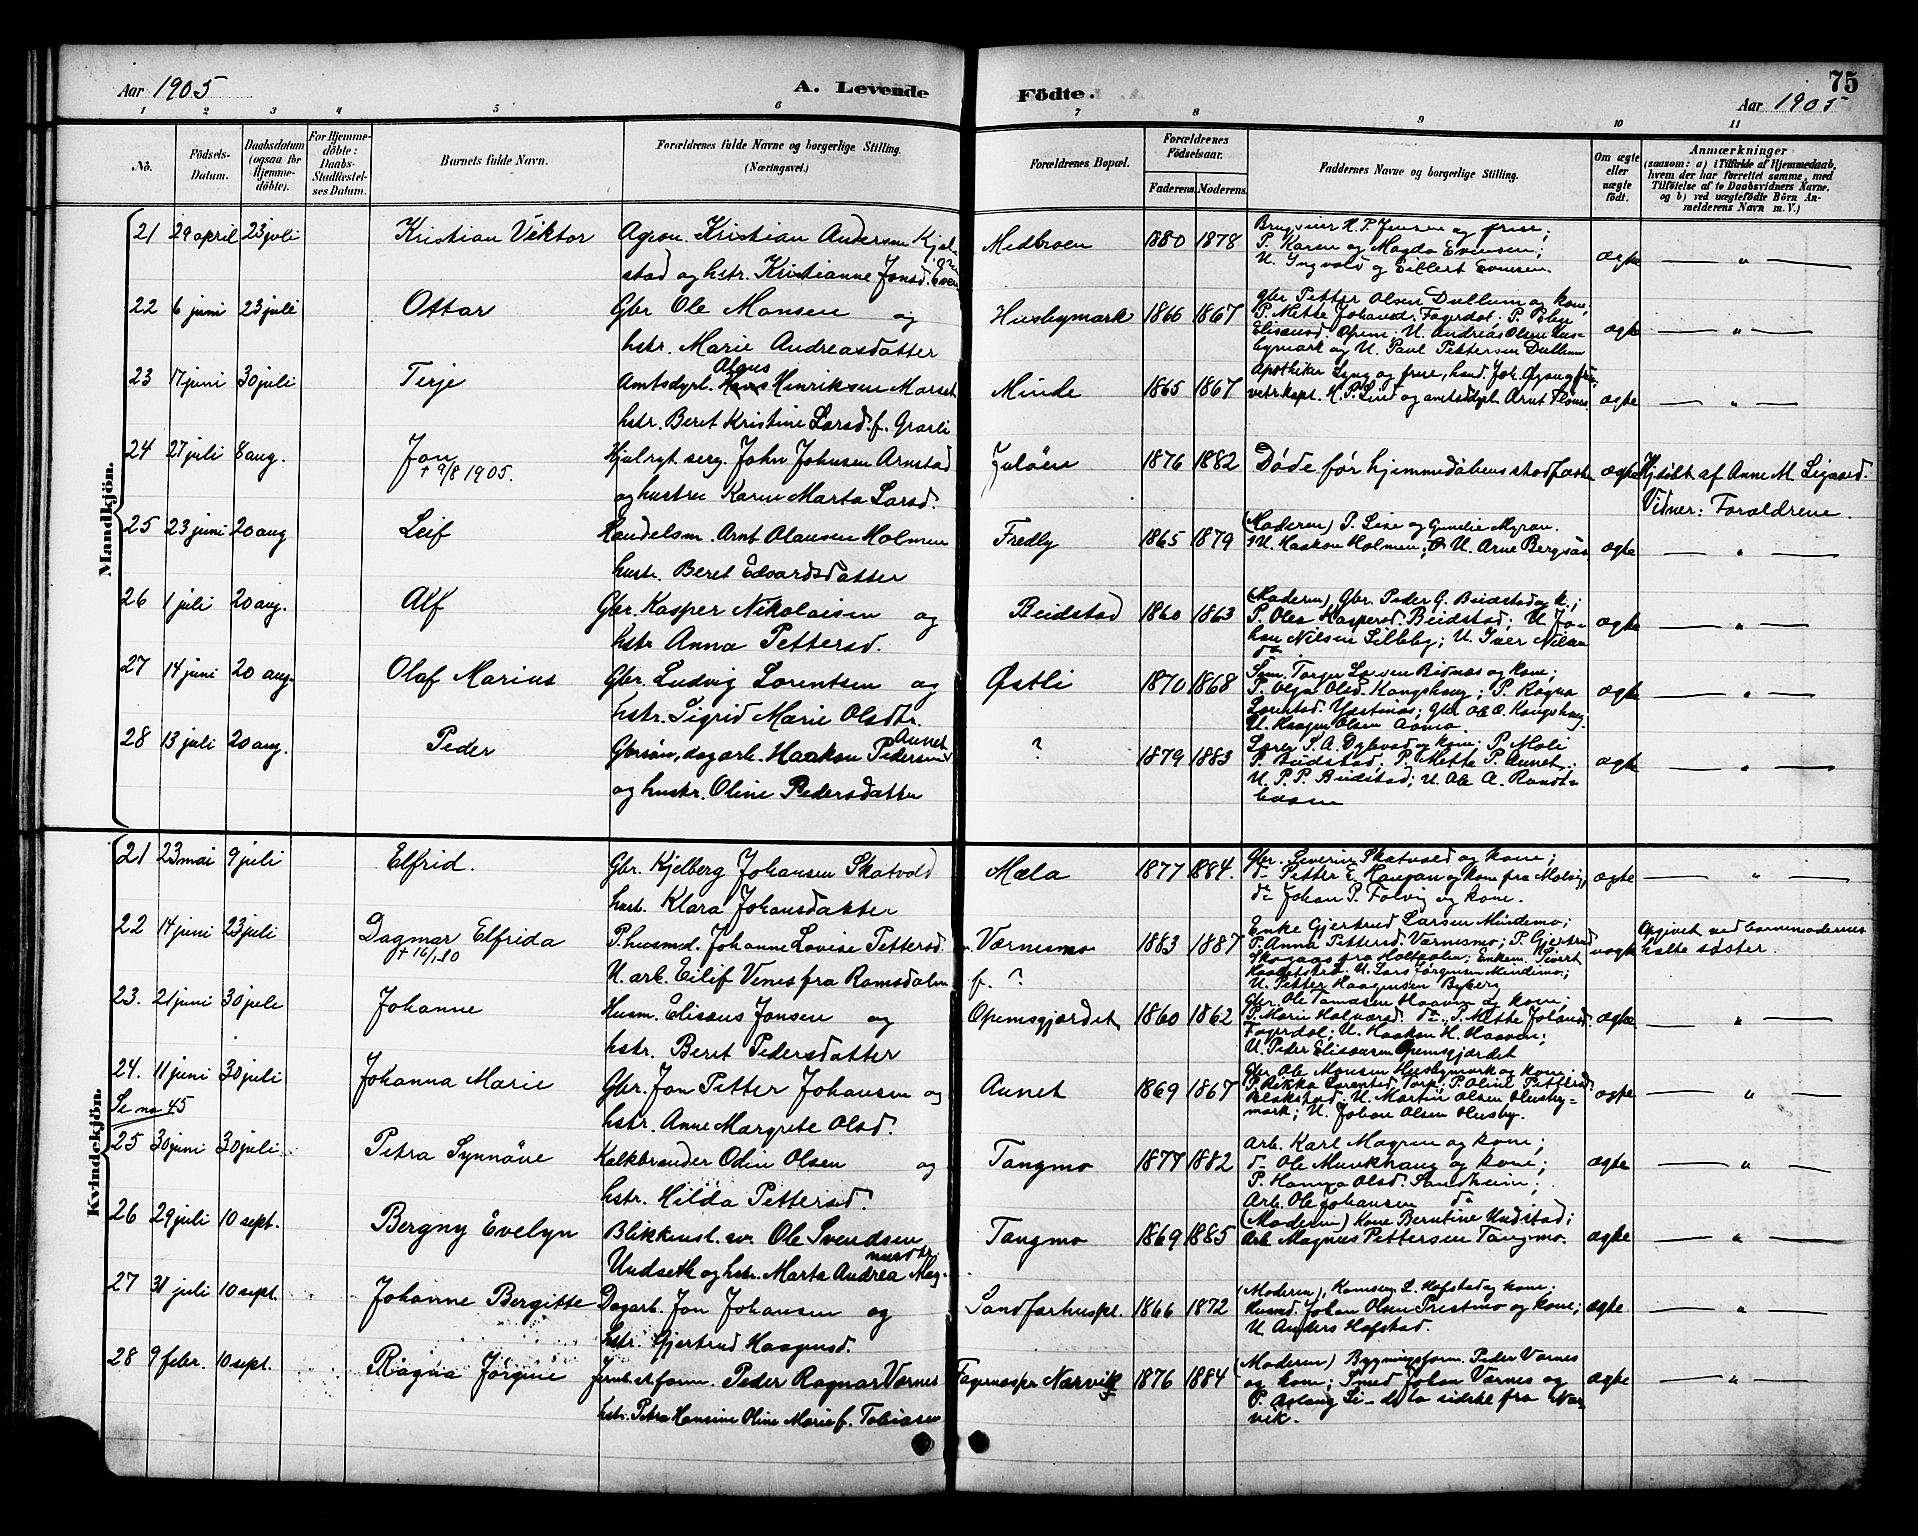 75
Aar 1905
A. Levende
Födte.
Aar 1905
1 2 3 4 5 6 7 8 9 10 11
No.
Födsels-Datum.
Daabsdatum (ogsaa for Hjemme-döbte).
For Hjemme-döbte: Daabs-Stadfæstel-ses Datum.
Barnets fulde Navn.
Forældrenes fulde Navne og borgerlige Stilling. (Næringsvei.)
Forældrenes Bopæl.
Forældrenes Födselsaar.
Faderens. Moderens.
Faddernes Navne og borgerlige Stilling.
Om ægte eller uægte födt.
Anmærkninger
(saasom: a) i Tilfælde af Hjemmedaab, hvem der har forrettet samme, med Tilföielse af to Daabsvidners Navne, og b) ved uægtefödte Börn An-melderens Navn m. V.)
Mandkjön.
21 29 april 23 juli Kristian Viktor Agron. Kristian Andersen Kjel-
stad og hstr. Kristianne Jonsd. Medbroen 1880 1878
P. Karen og Magda Evensen;
U. Ingvald og Eilert Evensen. ægte "
22 6 juni 23 juli Ottar Gbr Ole Monsen og
hstr. Marie Andreasdatter Husbymark 1866 1867
gbr Petter Olsen Dullum og kone;
P. Mette Johansd. Fagerdal;
U. Andreas Olsen Hus-
bymark og U. Paul Pettersen Dullum ægte "
23 17 juni 30 juli Terje Amtsdyrl. Henriksen
hstr. Beret Kristine Larsd. f. Grarli Minde 1865 1867
Apotheker Lyng og frue,
vetr.kapt. H. P. Lind og amtsdyrl. Arnt ægte "
24 27 juli 8 aug. Jon
+ 9/8 1905. serg. John Johnsen Arnstad
og hustru Karen Marta Larsd. 1876 1882 Døde før hjemmedåbens stadfæst. ægte Hjdöbt af Anne M.
Vidner: Forældrene.
25 23 juni 20 aug Leif Handelsm. Arnt Olausen Holmen
hustr. Beret Edvardsdatter Fredly 1865 1879
(Moderen) P. Lise og Gunelie Myran.
U. Haakon Holmen; U. Arne Bergsås ægte "
26 1 juli 20 aug. Alf Gbr. Kasper Nikolaisen og
hstr. Anna Pettersd. Beidstad 1860 1863
(Moderen) Gbr. Peder G. Beidstad og k.;
P. Olea Kaspersd. Beidstad; U. Jo-
han Nilsen Lilleby; U. Iver Nilsen
do ægte "
27 14 juni 20 aug. Olaf Marius Gbr. Ludvig Lorentsen og
hstr. Sigrid Marie Olsdtr. Østli 1870 1868
og kone;
P. Olga Olsd. Kongshaug; P. Ragna
Lorentsd. gbr Ole O. Kongshaug
U. Haagen Olsen ægte "
28 13 juli 20 aug. Peder Gbrsøn, dagarb. Haakon Pedersen Aunet
og hustr. Oline Pedersdatter ? 1879 1883
Lærer og kone; P.
P. Beidstad; P. Mette P. Aunet;
U. P. P. Beidstad; U. Ole A. ægte "
Kvindekjön.
21 23 mai 9 juli Elfrid. Gbr. Kjelberg Johansen Skatvold
hust. Klara Johansdatter Mæla 1877 1884.
Gbr. Severin Skatvold og kone;
do Petter E. Haugan og kone fra Malvig,
do Johan P. Folvig og kone. ægte "
22 14 juni 23 juli Dagmar Elfrida P. husmd. Johanne Lovise Pettersd.
U. arb. Eilif Venes fra Romsdalen Værnesmo
f. ? 1883 1887
Enke Gjertrud Larsen Mindemo;
P. Anna Pettersd. Værnesmo; P. Gjertrud
Skogaas fra Holtaalen; Enkem.
U. Lars Jørgensen Mindemo;
U. Petter Haagensen Byberg uægte Opgivet ved barnemoderens
halte søster.
23. 21 juni 30 juli Johanne Husm. Elisæus Jonsen og
hstr. Beret Pedersdatter Opemsgjærdet 1860 1862
Gbr. Ole Tomasen Haaven og kone;
P. Marie Halvorsd. do. P. Mette Johansd.
Fagerdal; U. Haakon H. Haaven;
U. Peder Elisæusen Opemsgjærdet ægte "
24. 11 juni 30 juli Johanna Marie Gbr. Jon Petter Johansen og
hstr. Anne Margrete Olsd. Aunet 1869 1867
Gbr Ole Monsen Husbymark og kone;
P. Rikka Lorentsd. Torp; P. Oline Pettersd.
Blakstad; U. Martin Olsen Husby-
mark; U. Johan Olsen Husby. ægte "
Se no 45
25 30 juni 30 juli Petra Synnöve Kalkbrænder Odin Olsen og
hstr. Hilda Pettersd. Tangmo 1877 1882
Arb. Karl Magnus og kone;
do Ole Munkhaug og kone;
P. Hanna Olsd. Sandheim;
Arb. Ole Johansen do ægte "
26 29 juli 10 sept. Bergny Evelyn Blikkensl. sv. Ole Svendsen
Undseth og hstr. Marta Andrea Mag-
nusdtr. Tangmo 1869 1885
(Moderen) Kone Berntine Undstad;
Arb. Magnus Pettersen Tangmo. ægte "
27 31 juli 10 sept. Johanne Bergitte Dagarb. Jon Johansen og
hstr. Gjertrud Haagensd. Sandfærhuspl. 1866 1872
(Moderen), L. Hofstad og kone;
Husmd. Johan Olsen Prestmo og kone;
U. Anders Hofstad. ægte "
28 9 febr. 10 sept. Ragna Jørgine Jernb. Peder Ragnar Værnes
hstr. Petra Hansine Oline Marie f. Tobiasen Fagernespr Narvik 1876 1884
(Moderen) Bygningsform. Peder Værnes
og kone; Smed Johan Værnes og
P. Aslaug Li – de to sidste fra Nar-
vik. ægte "